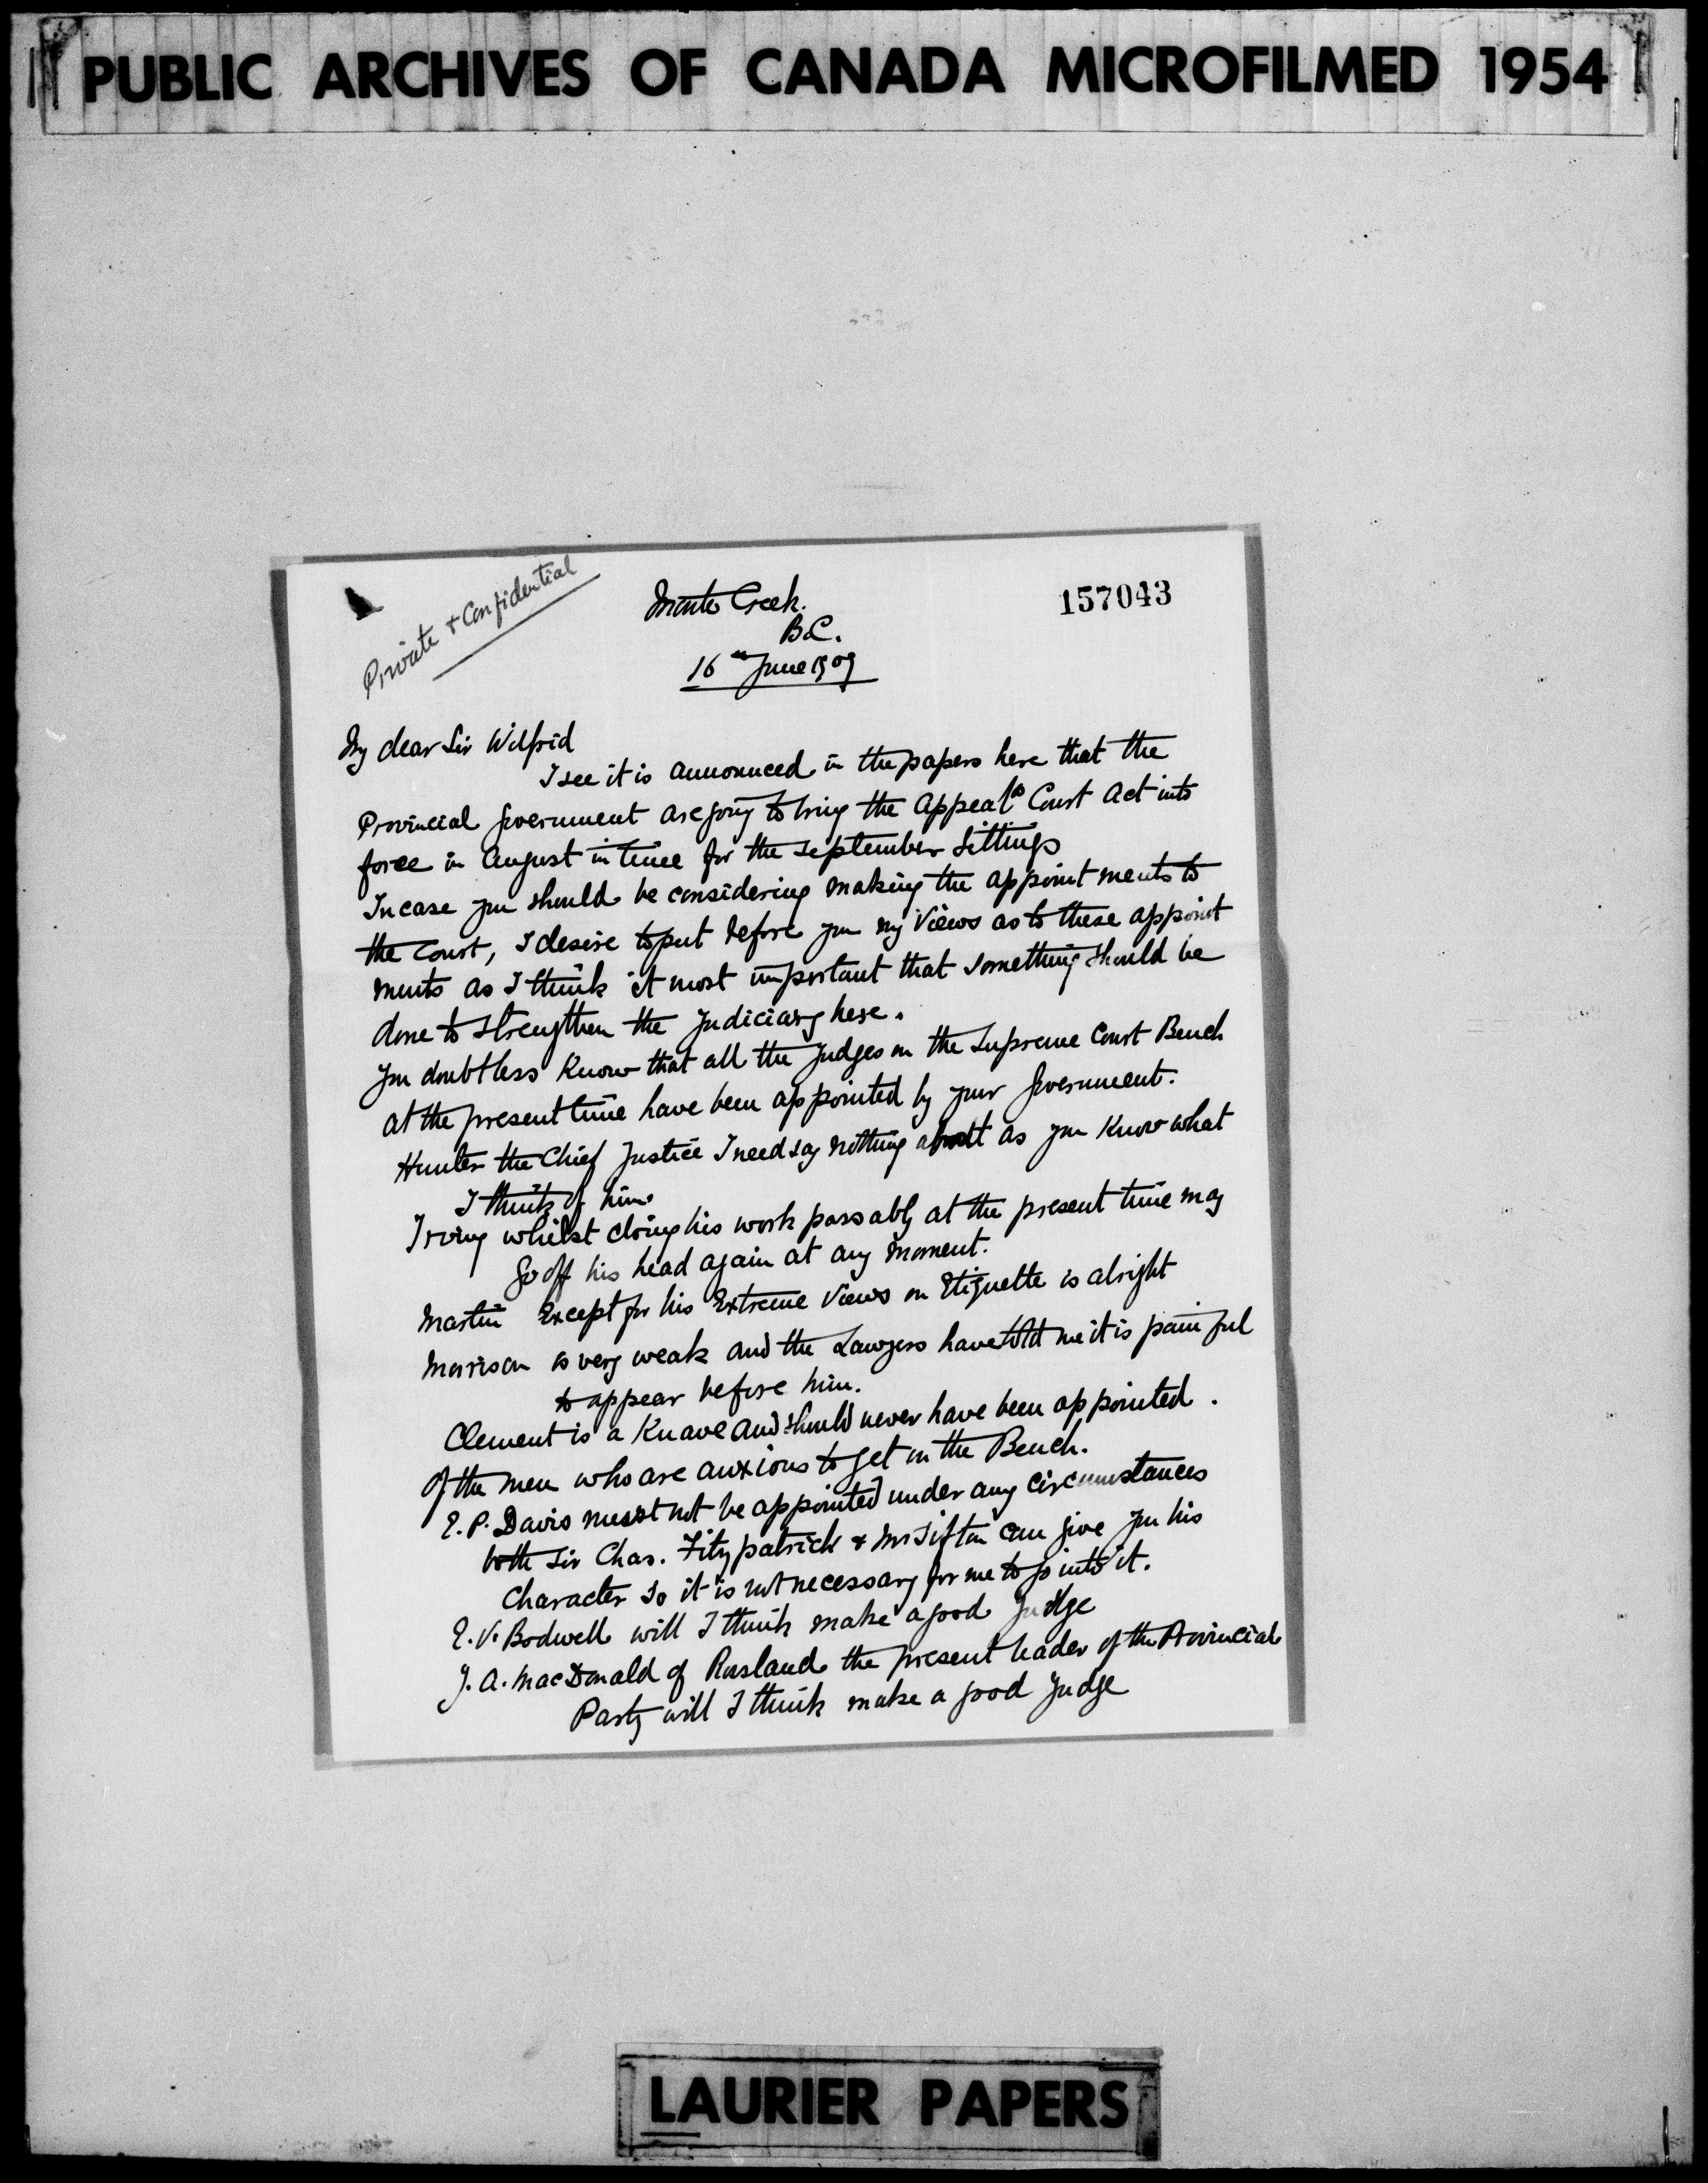 PUBLIC ARCHIVES OF CANADA MICROFILMED 1954
Private & Confidential
157043
Monte Creek.
B.C.
16th June 1909
My dear Sir Wilfrid
I see it is announced in the papers here that the
Provincial Government are going to bring the Appeals Court Act into
force in August in time for the September Sittings
In case you should be considering making the appointments to
the Court, I desire to put before you my views as to these appoint
ments as I think it most important that something should be
done to strengthen the Judiciary here.
You doubtless know that all the Judges on the Supreme Court Bench
at the present time have been appointed by your Government.
Hunter the Chief Justice I need say nothing about as you know what
I think of him.
Irving whilst doing his work passably at the present time may
go off his head again at any moment.
Martin Except for his Extreme views on Etiquette is alright
Morrison is very weak and the Lawyers have told me it is painful
to appear before him.
Clement is a Knave and should never have been appointed.
Of the men who are anxious to get on the Bench.
E. P. Davis must not be appointed under any circumstances
both Sir Chas. Fitzpatrick & Mr Sifton can give you his
Character so it is not necessary for me to go into it.
E. V. Bodwell will I think make a good Judge
J. A. MacDonald of Rosland the present leader of the Provincial
Party will I think make a good Judge
LAURIER PAPERS